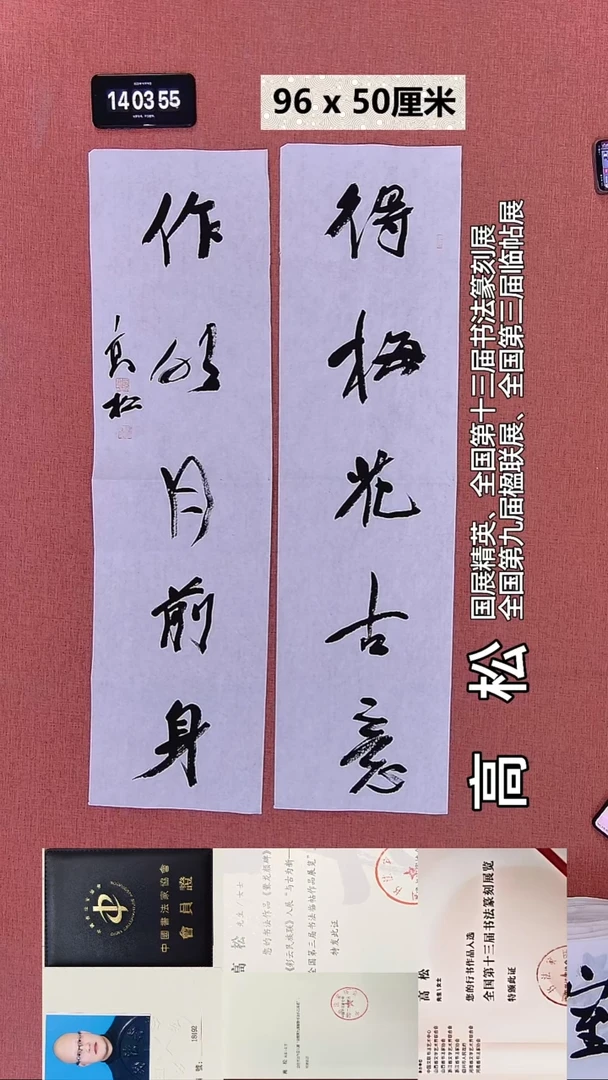 14 03 55
96 x 50厘米
得梅花古意
作明月前身
高松
国展精英、全国第十三届书法篆刻展
全国第九届楹联展、全国第三届临帖展
高 松
中國書法家協會
會員證
高 松 先生/女士
您的书法作品《爨龙颜碑》
全国第三届书法临帖作品展览"
特发此证
高 松
先生\女士
您的行书作品入选
全国第十三届书法篆刻展览
特颁此证